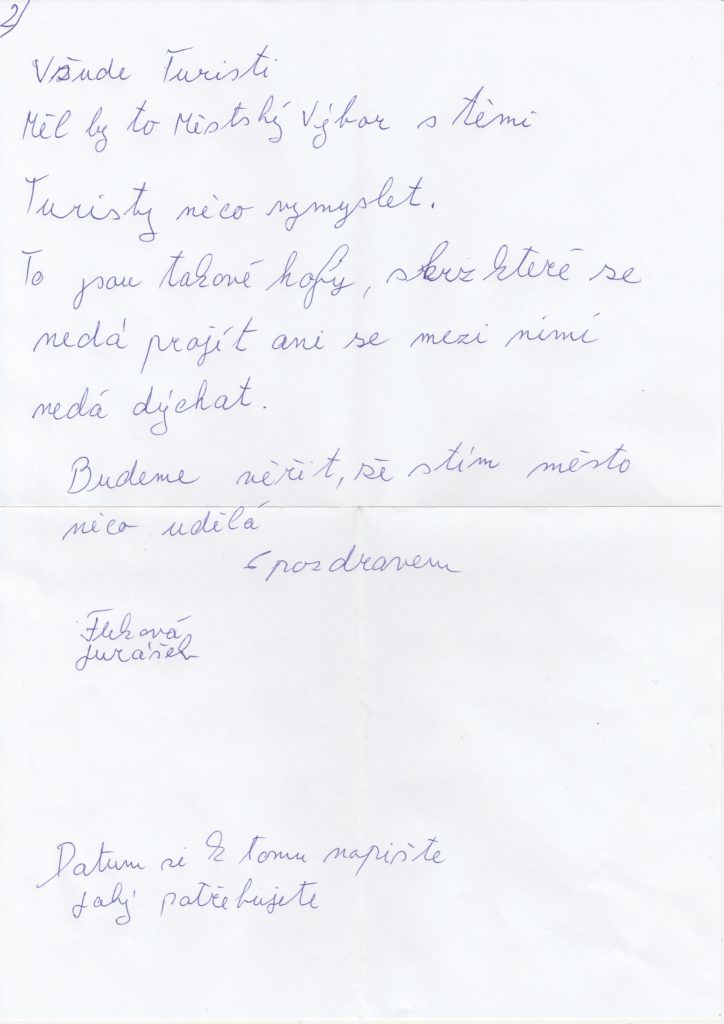 2)
Všude Turisti
Měl by to Městský Výbor s těmi
Turisty něco vymyslet.
To jsou takové hofy, skrz které se
nedá projít ani se mezi nimi
nedá dýchat.
Budeme věřit, že stím město
něco udělá
S pozdravem
Jurášek
Datum si k tomu napište
jaký potřebujete